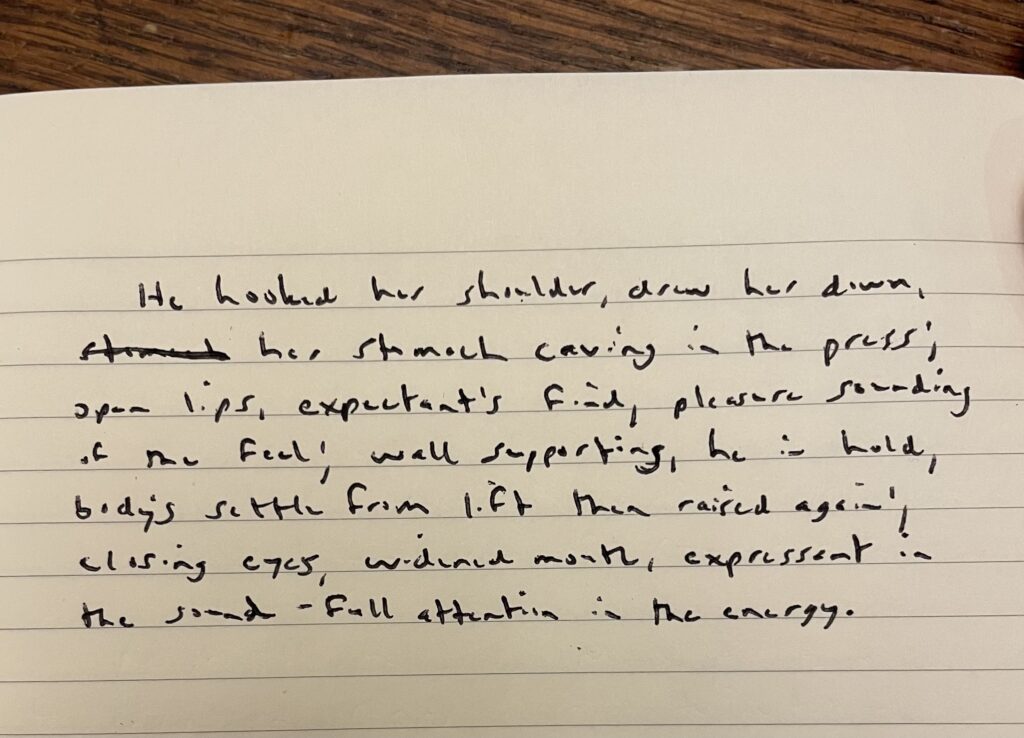 He hooked her shoulder, drew her down,
her stomach caving in the press;
open lips, expectant's find, pleasure sounding
of the feel; wall supporting, he in hold,
body's settle from lift then raised again;
closing eyes, widened mouth, expressent in
the sound - full attention in the energy.